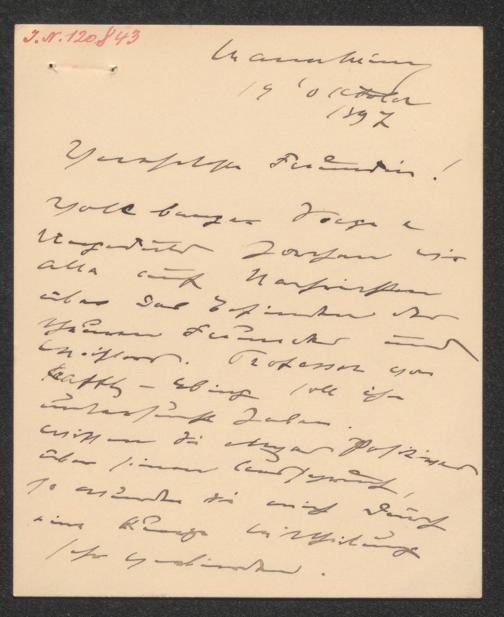 J.N. 120843
Mannheim
19 October
1897
Verehrteste Freundin!
Voll banger Sorge u
Ungeduld horchen wir
alle auf Nachrichten
über das Befinden des
theuren Freundes und
Meisters. Professor von
Krafft-Ebing soll ihn
untersucht haben.
Wissen Sie etwas Positives
über seinen
so würden Sie mich durch
eine kurze Mittheilung
sehr verbinden.